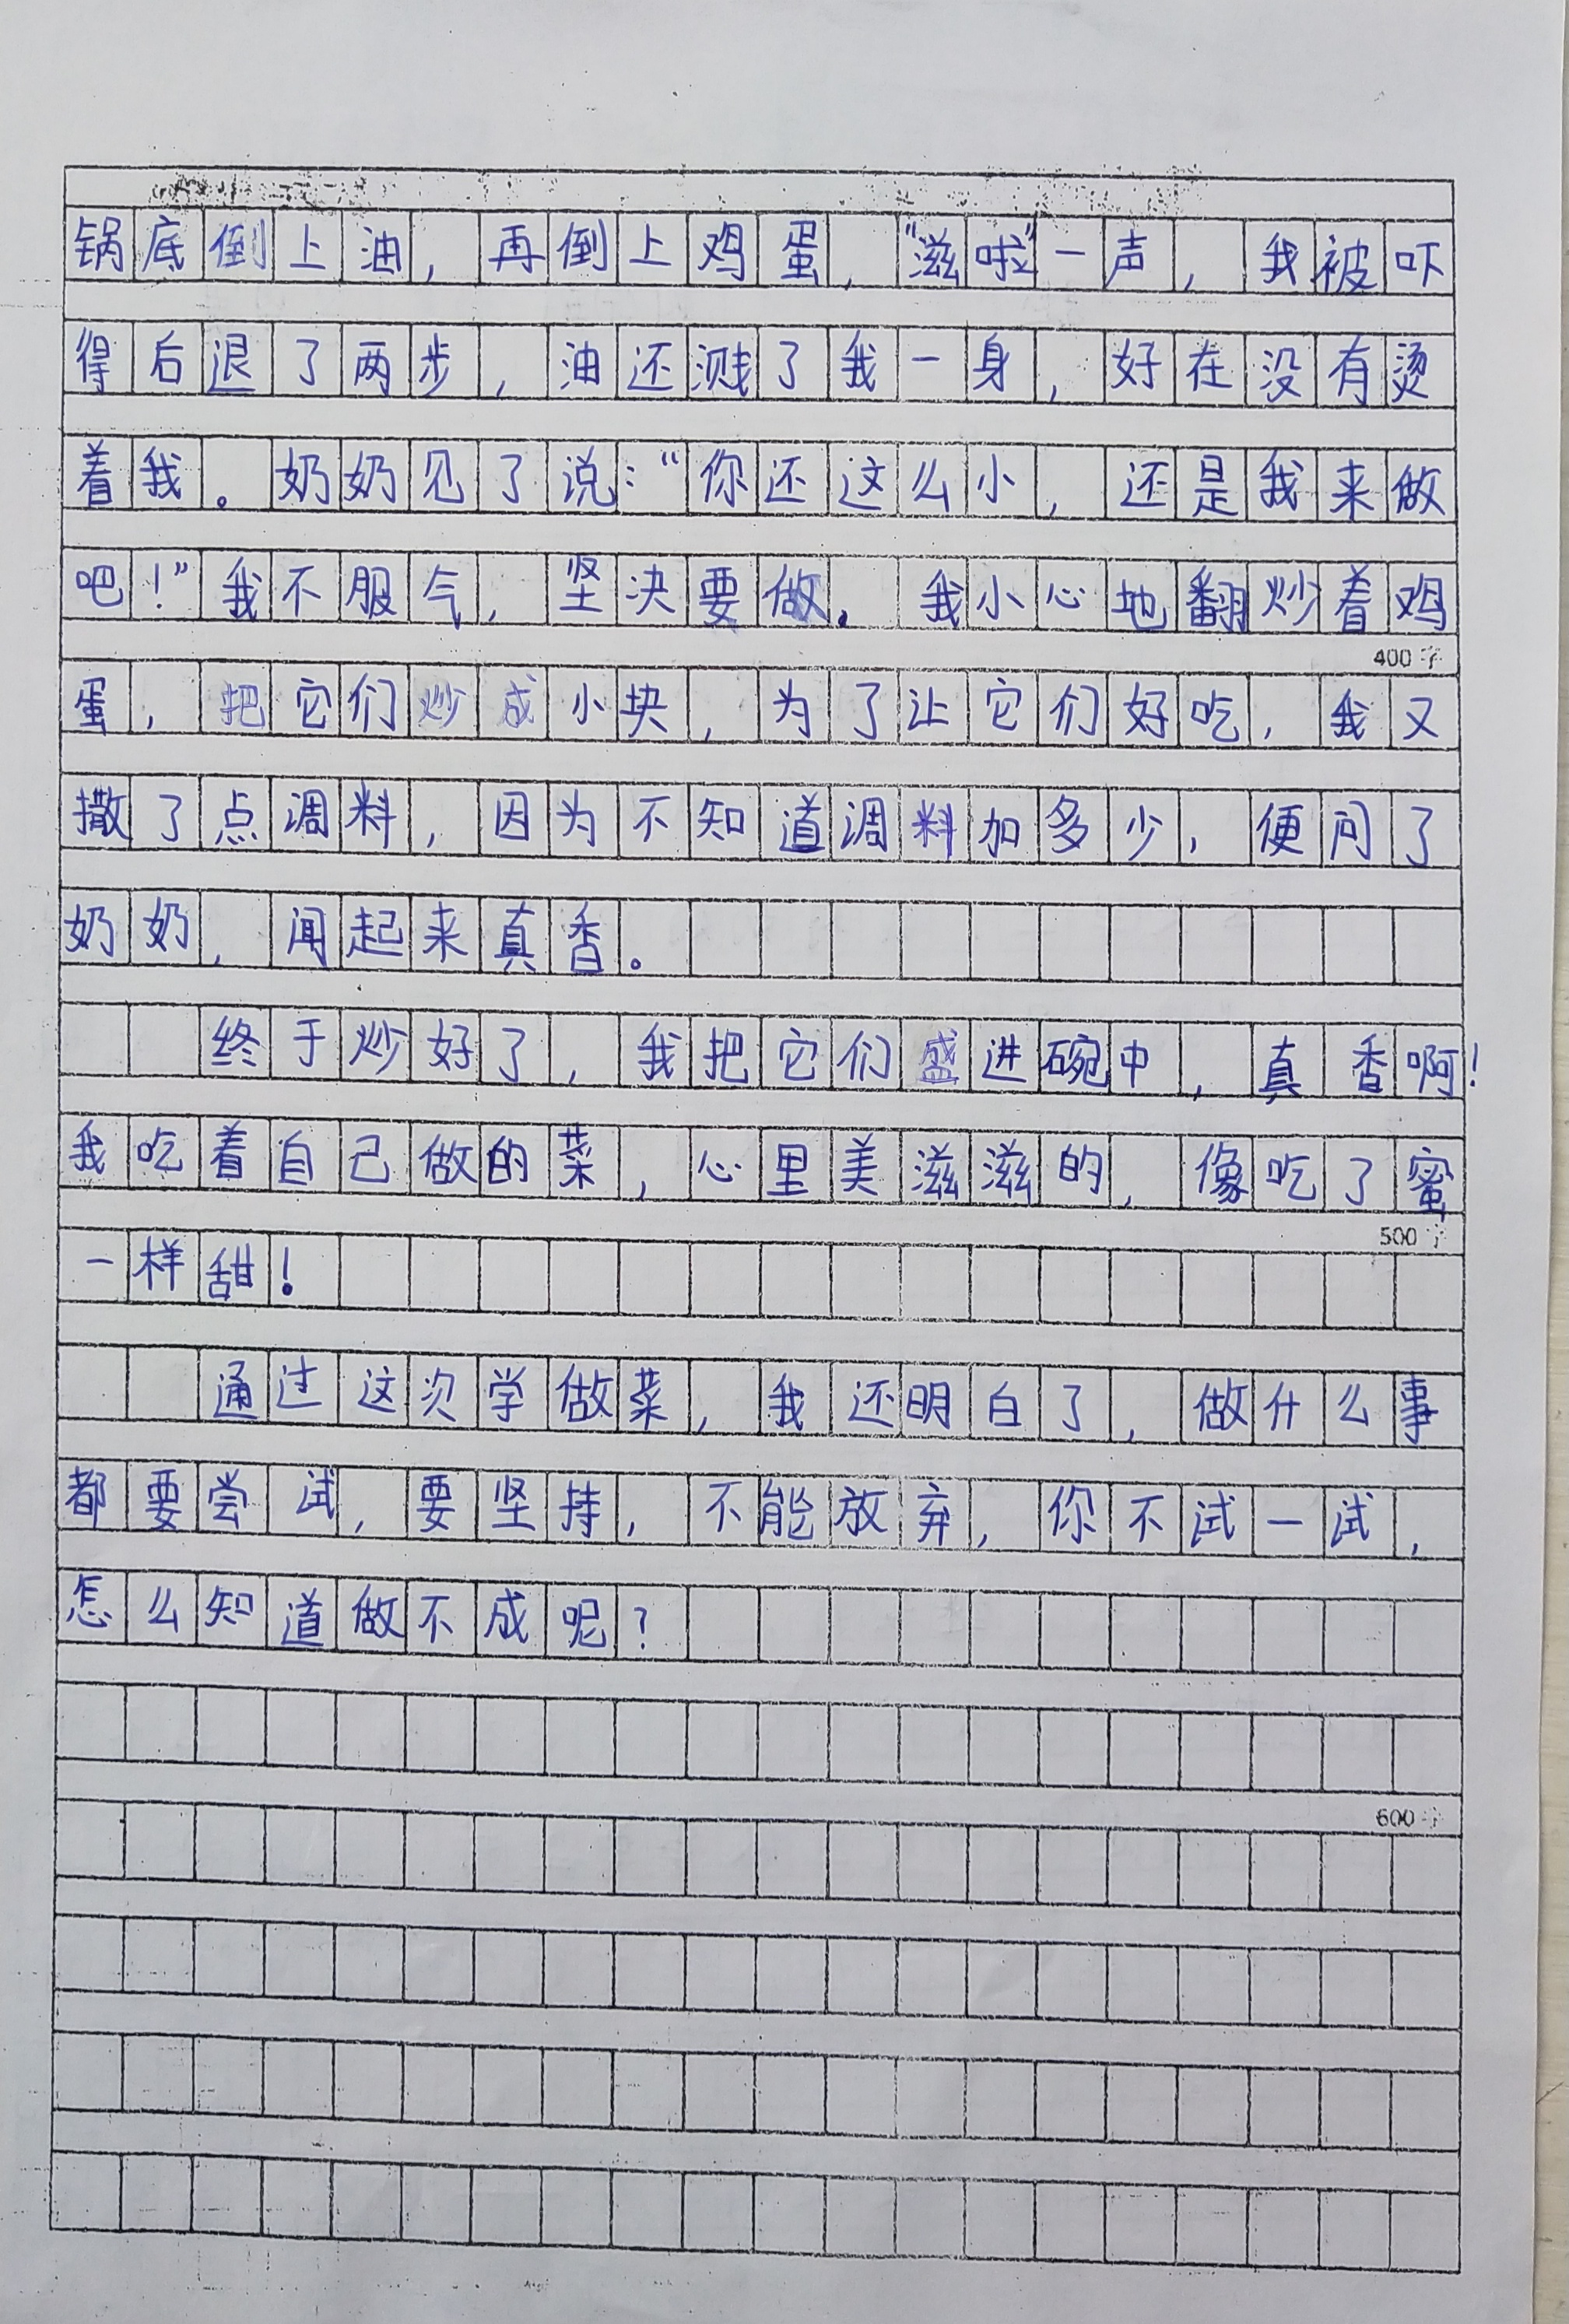 锅底倒上油，再倒上鸡蛋，“滋啦”一声，我被吓
得后退了两步，油还溅了我一身，好在没有烫
着我。奶奶见了说：“你还这么小，还是我来做
吧！”我不服气，坚决要做。我小心地翻炒着鸡
400字
蛋，把它们炒成小块，为了让它们好吃，我又
撒了点调料，因为不知道调料加多少，便问了
奶奶，闻起来真香。
终于炒好了，我把它们盛进碗中，真香啊！
我吃着自己做的菜，心里美滋滋的，像吃了蜜
500字
一样甜！
通过这次学做菜，我还明白了，做什么事
都要尝试，要坚持，不能放弃，你不试一试，
怎么知道做不成呢？
600字